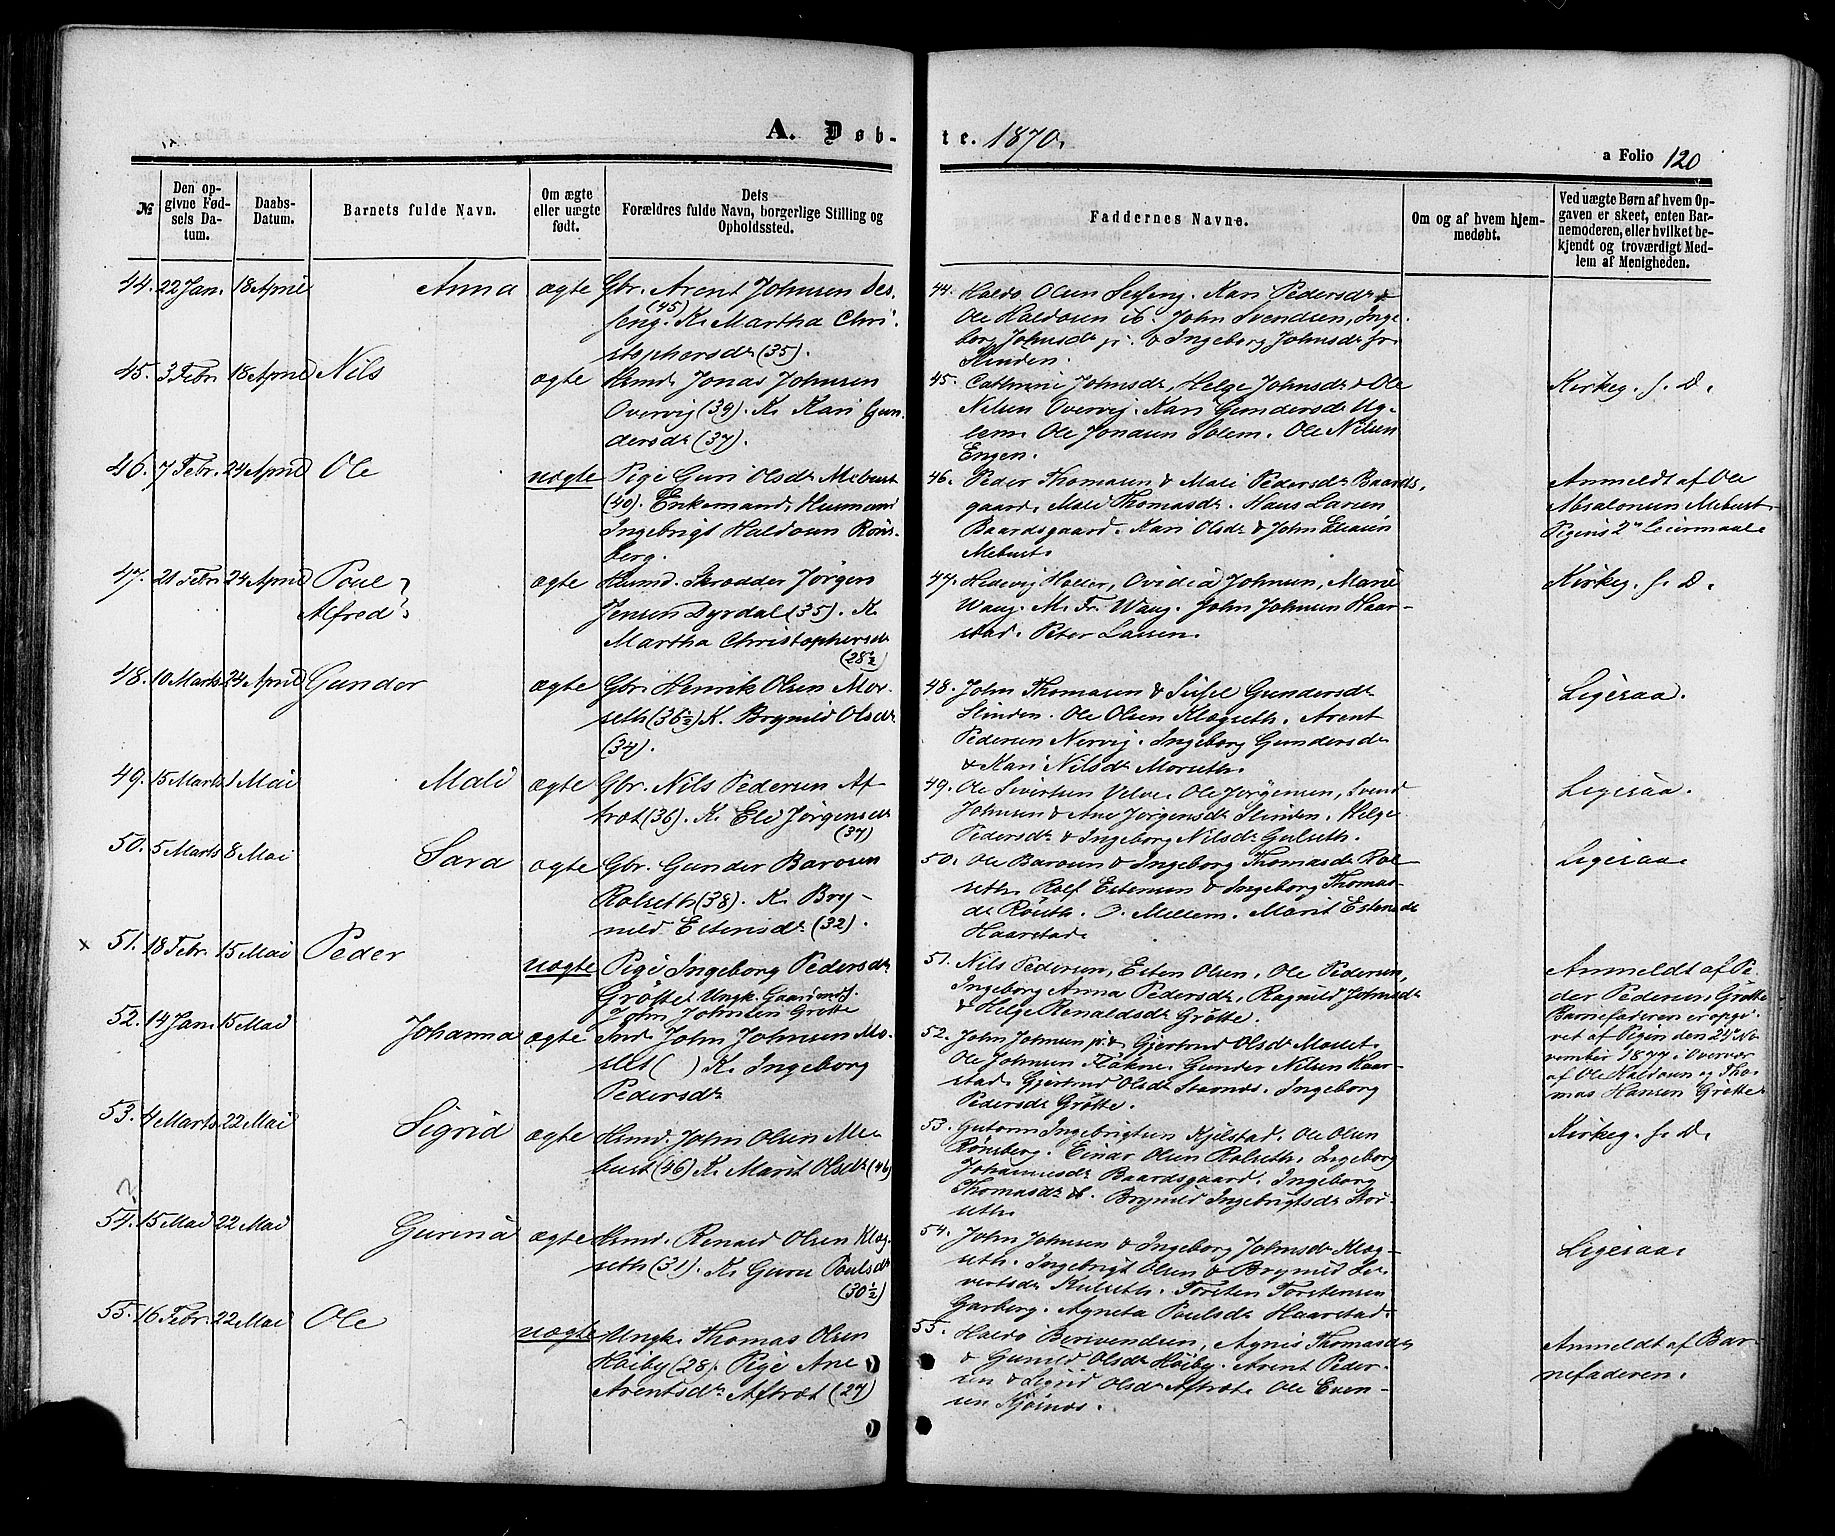 A. Døb-
te. 1870.
a Folio 120
№
Den opgivne Fødsels Datum.
Daabs-Datum.
Barnets fulde Navn.
Om ægte eller uægte født.
Dets Forældres fulde Navn, borgerlige Stilling og Opholdssted.
Faddernes Navne.
Om og af hvem hjemmedøbt.
Ved uægte Børn af hvem Opgaven er skeet, enten Barnemoderen, eller hvilket bekjendt og troværdigt Medlem af Menigheden.
44. 22 Jan. 18 April Anna ægte Gbr. Arent Johnsen Ses-
feng. (45) K. Martha Chri-
stophersdr (35).
44. Haldo Olsen Sesseng. Kari Pedersdr &
Ole Haldosen ib. John Svendsen, Inge-
borg Johnsdr jr. & Ingeborg Johnsdr fr.
Slinden.
45. 3 Febr. 18 April Nils ægte Hsmd. Jonas Johnsen
Overvig (39). K. Kari Gun-
dersdr (37).
45. Cathrine Johnsdr, Helge Johnsdr & Ole
Nilsen Overvig. Kari Gundersdr Ug-
lem. Ole Jonasen Solem. Ole Nilsen
Engen.
Kirkeg. f. D.
46. 7 Febr. 24 April Ole uægte Pige Guri Olsdr Mebust
(40). Enkemand, Husmand
Ingebrigt Haldosen Röns-
berg.
46. Peder Thomasen & Mali Pedersdr Baards-
gaard, Mali Thomasdr. Hans Larsen
Baardsgaard. Kari Olsdr & John
Mebust.
Anmeldt af Ole
Absalonsen Mebust.
Pigens 2det Leiermaal.
47. 21 Febr. 24 April Poul
Alfred ægte Husmd. Skrædder Jørgen
Jensen Dyrdal (35). K.
Martha Christophersdr
(28½)
47. Hedevig Holder, Ovidia Johnsen, Marie
Waug. M. Fr. Waug. John Johnsen Haar-
stad. Peter Larsen.
Kirkeg. f. D.
48. 10 Marts 24 April Gunder ægte Gbr. Henrik Olsen Mor-
seth (36½) K. Brynild Olsdr
(34).
48. John Thomasen & Sissel Gundersdr
Slinden. Ole Olsen Klægseth. Arent
Pedersen Nervig. Ingeborg Gundersdr
& Kari Nilsdr Morseth.
Ligesaa.
49. 15 Marts 1 Mai Mali ægte Gbr. Nils Pedersen Af-
træt (36). K. Eli Jørgensdr
(37)
49. Ole Sivertsen Velve. Ole Jørgensen, Svend
Johnsen & Ane Jørgensdr Slinden. Helge
Pedersdr & Ingeborg Nilsdr Gulseth.
Ligesaa.
50. 5 Marts 8 Mai Sara ægte Gbr. Gunder Barosen
Rolseth (38). K. Bry-
nild Estensdr (32).
50. Ole Barosen & Ingeborg Thomasdr Rol-
seth. Rolf Estensen & Ingeborg Thomas-
dr Röseth. O. Mellem. Marit Estensdr
Haarstad.
Ligesaa
x 51. 18 Febr. 15 Mai Peder uægte Pige Ingeborg Pedersdr
Grötte. Ungk. Gaardmds.
John Johnsen Grötte
51. Nils Pedersen, Esten Olsen, Ole Pedersen,
Ingeborg Anna Pedersdr, Ragnild Johnsdr
& Helge Renaldsdr Grötte.
Anmeldt af Pe-
der Pedersen Grötte
Barnefaderen er opgi-
vet af Pigen den 21de No-
vember 1877 i Overvær
af Ole Haldosen og Tho-
mas Hansen Grötte
52. 14 Jan. 15 Mai Johanna ægte Ind. John Johnsen Mo-
slet ( ) K. Ingeborg
Pedersdr
52. John Johnsen jr & Gjertrud Olsdr Moslet.
Ole Johnsen Flaknæ. Gunder Nilsen Haar-
stad. Gjertrud Olsdr Stamnæs. Ingeborg
Pedersdr Grötte.
53. 4 Marts 22 Mai Sigrid ægte Hsmd. John Olsen Me-
bust (46) K. Marit Olsdr (46)
53. Gutorm Ingebrigtsen Kjelstad. Ole Olsen
Rönsberg. Einar Olsen Rolseth. Ingeborg
Johannesdr Baardsgaard. Ingeborg
Thomasdr & Brynild Ingebrigtsdr Mor-
seth.
Kirkeg. f. D.
?
54. 15 Mai 22 Mai Gurina ægte Hsmd. Renald Olsen Klæg-
seth (31). K. Guru Poulsdr
(30½)
54. John Johnsen & Ingeborg Johnsdr Klæg-
seth. Ingebrigt Olsen & Brynild Si-
vertsdr Kulseth. Torsten Torstensen
Garberg. Agneta Poulsdr Haarstad.
Ligesaa
55. 16 Febr. 22 Mai Ole uægte Ungk. Thomas Olsen
Höiby (28). Pige Ane
Arentsdr Aftræt (27)
55. Haldo Berivendsen, Agnis Thomasdr
& Gunild Olsdr Höiby. Arent Peder-
sen & Sigrid Olsdr Aftræt. Ole Even-
sen Kjösnæs.
Anmeldt af Bar-
nefaderen.